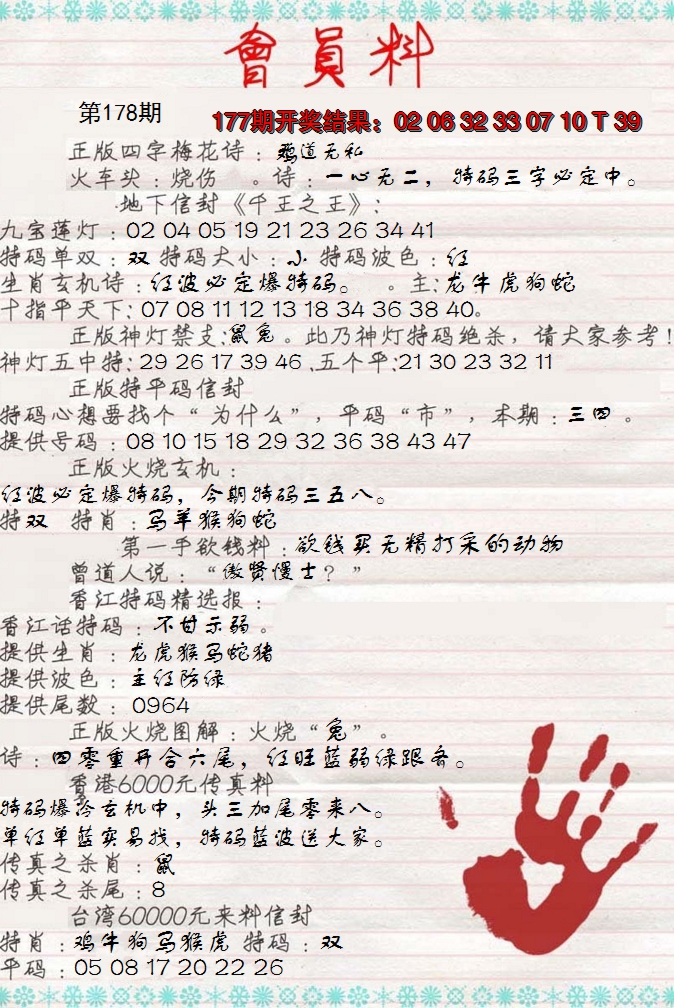 會員料
第178期
177期开奖结果：02 06 32 33 07 10 T 39
正版四字梅花诗：鸡道无私
火车头：烧伤 。诗：一心无二，特码三字必定中。
地下信封《千王之王》：
九宝莲灯：02 04 05 19 21 23 26 34 41
特码单双：双 特码大小：小 特码波色：红
生肖玄机诗：红波必定爆特码。 。主：龙牛虎狗蛇
十指平天下：07 08 11 12 13 18 34 36 38 40。
正版神灯禁支：鼠兔。此乃神灯特码绝杀，请大家参考！
神灯五中特：29 26 17 39 46 .五个平：21 30 23 32 11
正版特平码信封
特码心想要找个“为什么”，平码“市”，本期：三四 。
提供号码：08 10 15 18 29 32 36 38 43 47
正版火烧玄机：
红波必定爆特码，今期特码三五八。
特双 特肖：马羊猴狗蛇
第一手欲钱料：欲钱买无精打采的动物
曾道人说：“傲贤慢士？”
香江特码精选报：
香江话特码：不甘示弱。
提供生肖：龙虎猴马蛇猪
提供波色：主红防绿
提供尾数：0964
正版火烧图解：火烧“兔”。
诗：四零重开合六尾，红旺蓝弱绿跟各。
香港6000元传真料
特码爆冷玄机中，头三加尾零来八。
单红单蓝实易找，特码蓝波送大家。
传真之杀肖：鼠
传真之杀尾：8
台湾60000元来料信封
特肖：鸡牛狗马猴虎 特码：双
平码：05 08 17 20 22 26